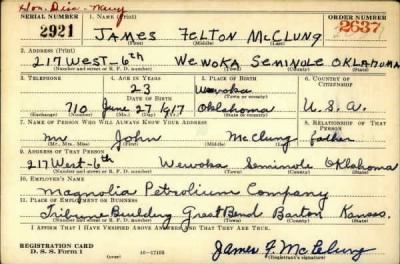 Hon. Disc. - Navy
SERIAL NUMBER 1. NAME (Print) ORDER NUMBER
2921 JAMES FELTON McCLUNG 2637
(First) (Middle) (Last)
2. ADDRESS (Print)
217 WEST-6th WEWOKA SEMINOLE OKLAHOMA
(Number and street or R. F. D. number) (Town) (County) (State)
3. TELEPHONE 4. AGE IN YEARS 5. PLACE OF BIRTH 6. COUNTRY OF CITIZENSHIP
23 Wewoka
DATE OF BIRTH (Town or county)
710 June 27 1917 Oklahoma U.S.A.
(Exchange) (Number) (Mo.) (Day) (Yr.) (State or country)
7. NAME OF PERSON WHO WILL ALWAYS KNOW YOUR ADDRESS 8. RELATIONSHIP OF THAT PERSON
Mr John McClung father
(Mr., Mrs., Miss) (First) (Middle) (Last)
9. ADDRESS OF THAT PERSON
217 West-6th Wewoka Seminole Oklahoma
(Number and street or R. F. D. number) (Town) (County) (State)
10. EMPLOYER'S NAME
Magnolia Petrolium Company
11. PLACE OF EMPLOYMENT OR BUSINESS
Tribune Building Great Bend Barton Kansas.
(Number and street or R. F. D. number) (Town) (County) (State)
I AFFIRM THAT I HAVE VERIFIED ABOVE ANSWERS AND THAT THEY ARE TRUE.
REGISTRATION CARD
D. S. S. Form 1 16-17105 James F. McClung
(Registrant's signature)